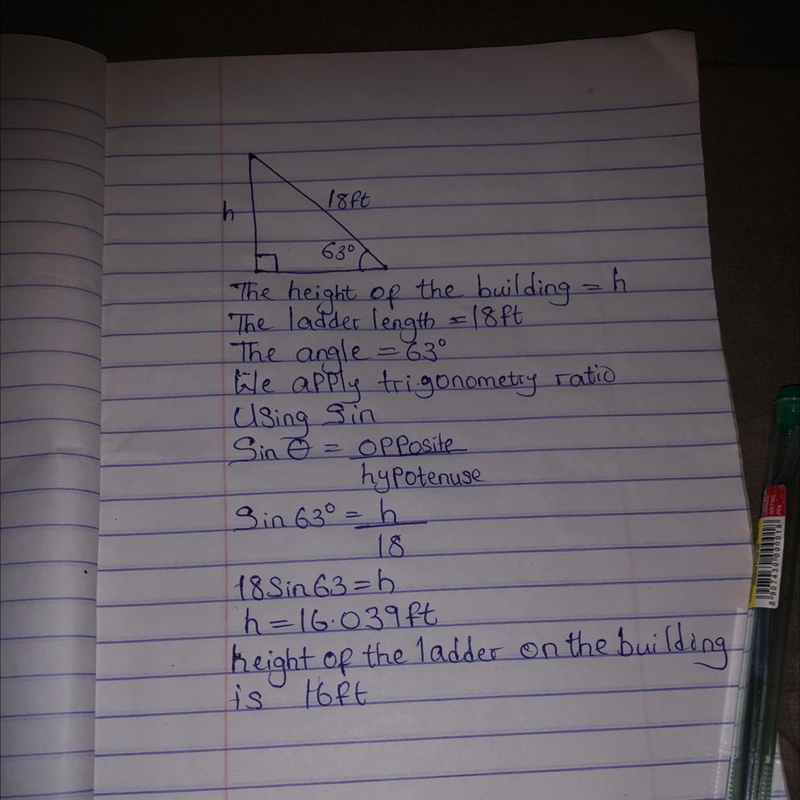 h
18ft
63°
The height of the building = h
The ladder length = 18ft
The angle = 63°
We apply trigonometry ratio
Using Sin
Sin θ = opposite
hypotenuse
Sin 63° = h
18
18Sin63 = h
h = 16.039ft
height of the ladder on the building
is 16ft
8907430000018